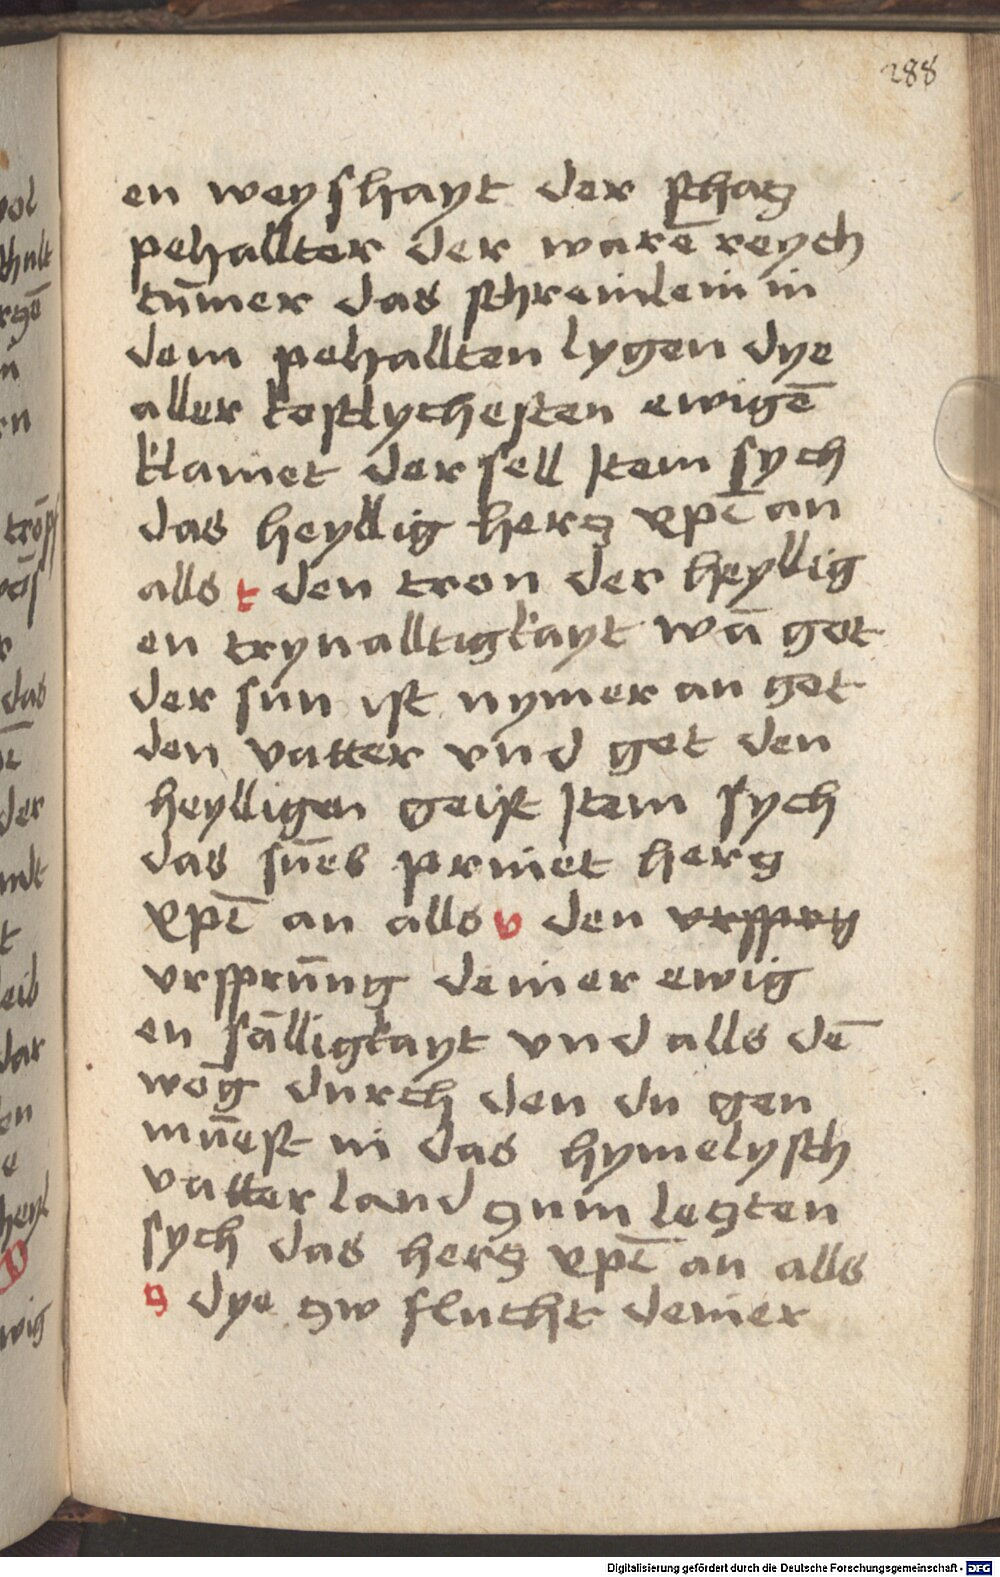 288
en weyshayt der schacz
pehallter der warē reych
tūmer das schreinlein in
dem pehallten lygen dye
aller kostlychesten ewigē
klainet der sell Item sych
das heyllig hercz xp̄i an
alls t den tron der heyllig
en trynalltigkayt wā got
der sun ist nymer an got
den vatter vnd got den
heylligen geist Item sych
das sūes prinet hercz
xp̄i an alls v den vrsprg
vrsprūng deiner ewig
en sālligkayt vnd alls dē
weg durch den du gen
muest in das hymelysch
vatter land czum leczten
sych das hercz xp̄i an alls
z dye czw flucht deiner
Digitalisierung gefördert durch die Deutsche Forschungsgemeinschaft - DFG